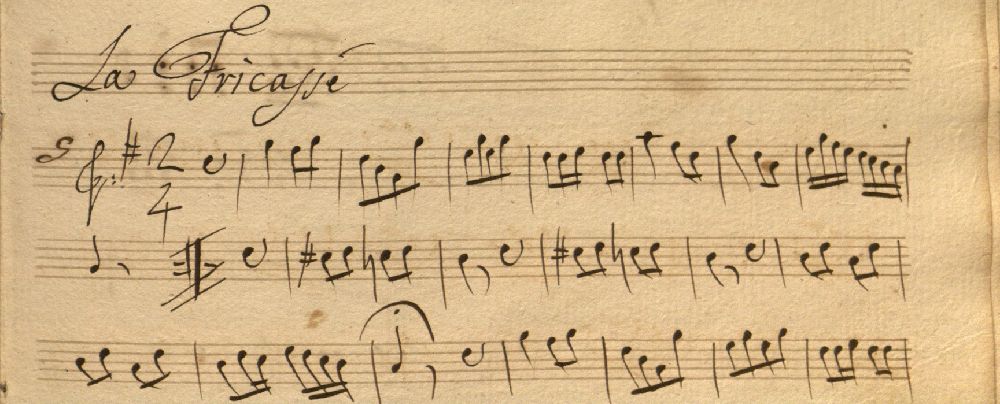 La Fricassé
2
4